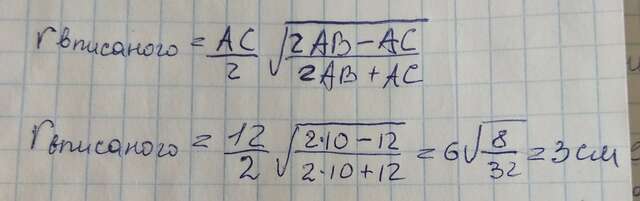 rвписаного = AC/2 √(2AB-AC/2AB+AC)
rвписаного = 12/2 √(2·10-12/2·10+12) = 6√(8/32) = 3 см